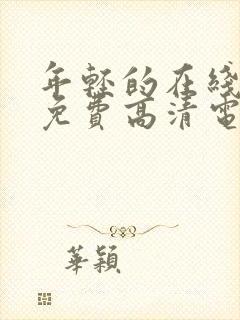 年轻的在线
免費高清電
華穎